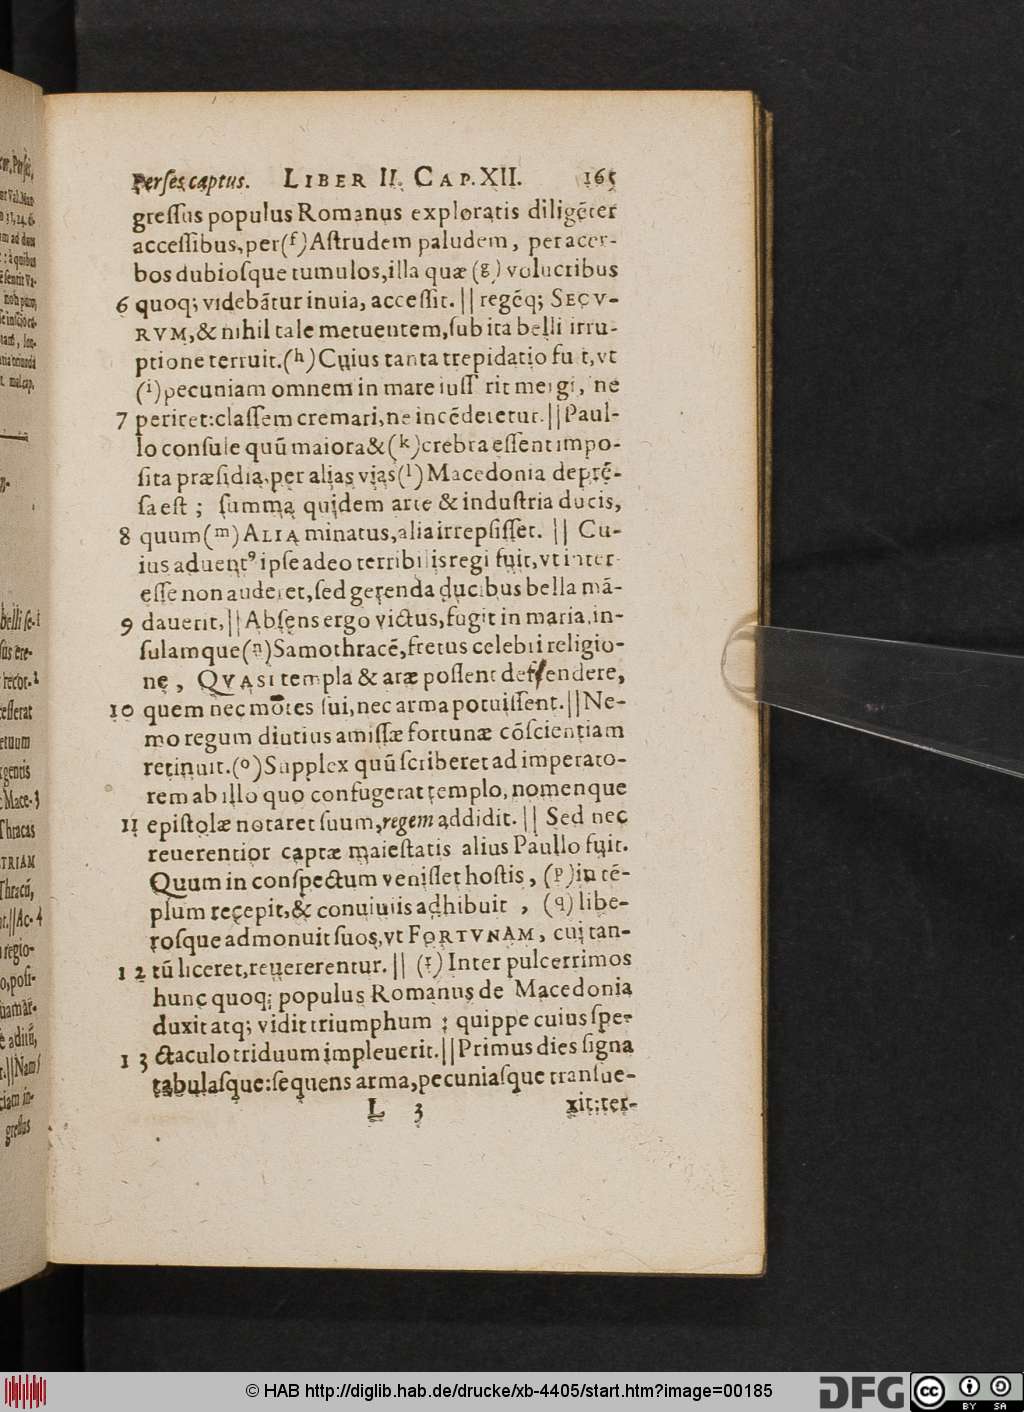 Perses captus. LIBER II. CAP. XII. 165
gressus populus Romanus exploratis diligēter
accessibus, per (f) Astrudem paludem, per acer-
bos dubiosque tumulos, illa quæ (g) volucribus
6 quoq; videbātur inuia, accessit. || regēq; SECV-
RVM, & nihil tale metuentem, subita belli irru-
ptione terruit. (h) Cuius tanta trepidatio fuit, vt
(i) pecuniam omnem in mare iusserit mergi, ne
7 periret: classem cremari, ne incēderetur. || Paul-
lo consule quū maiora & (k) crebra essent impo-
sita præsidia, per alias vias (l) Macedonia deprē-
sa est ; summa quidem arte & industria ducis,
8 quum (m) ALIA minatus, alia irrepsisset. || Cu-
ius aduent⁹ ipse adeo terribilis regi fuit, vt inter
esse non auderet, sed gerenda ducibus bella mā-
9 dauerit, || Absens ergo victus, fugit in maria, in-
sulamque (n) Samothracē, fretus celebri religio-
ne, QVASI templa & aræ possent deffendere,
10 quem nec mōtes sui, nec arma potuissent. || Ne-
mo regum diutius amissæ fortunæ cōscientiam
retinuit. (o) Supplex quū scriberet ad imperato-
rem ab illo quo confugerat templo, nomenque
11 epistolæ notaret suum, regem addidit. || Sed nec
reuerentior captæ maiestatis alius Paullo fuit.
Quum in conspectum venisset hostis, (p) in tē-
plum recepit, & conuiuiis adhibuit , (q) libe-
rosque admonuit suos, vt FORTVNAM, cui tan-
12 tū liceret, reuererentur. || (r) Inter pulcerrimos
hunc quoq; populus Romanus de Macedonia
duxit atq; vidit triumphum ; quippe cuius spe-
13 ctaculo triduum impleuerit. || Primus dies signa
tabulasque: sequens arma, pecuniasque transue-
L 3 xit: ter-
© HAB http://diglib.hab.de/drucke/xb-4405/start.htm?image=00185
DFG
cc BY SA